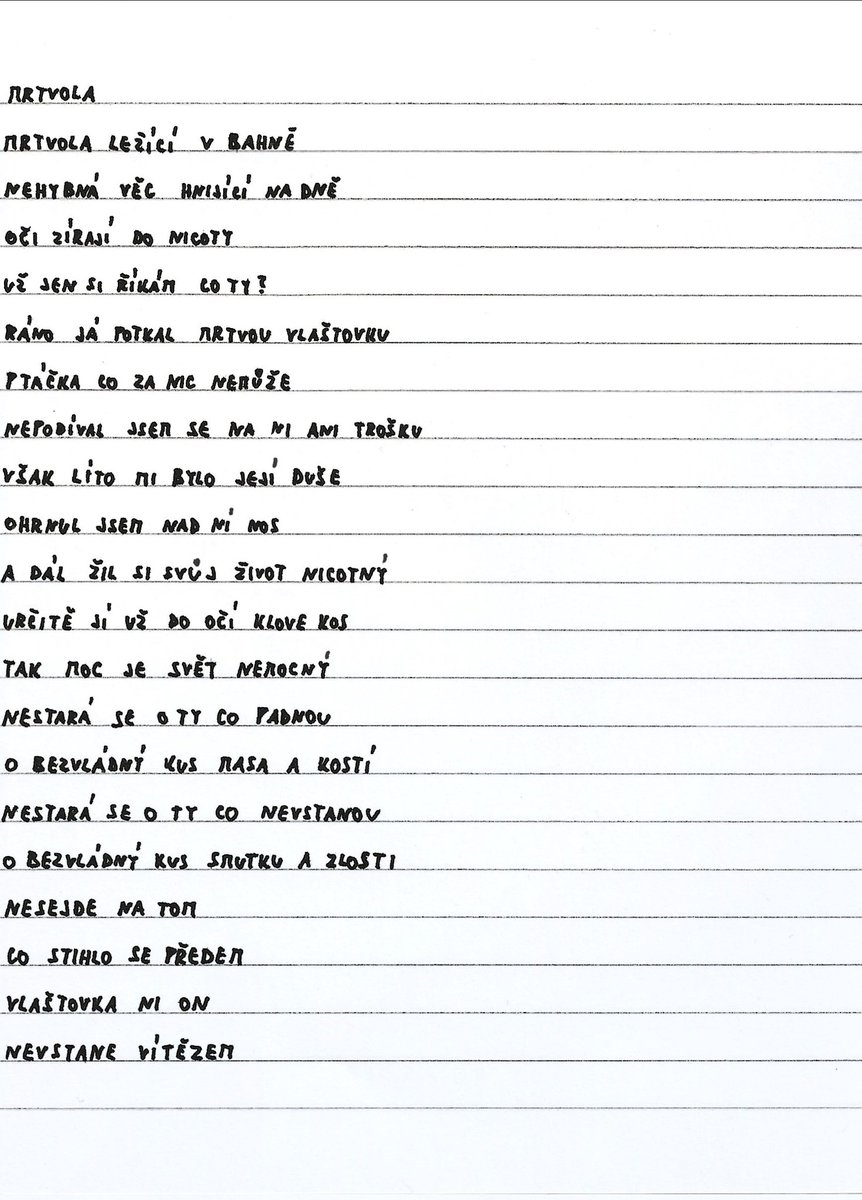 MRTVOLA
MRTVOLA LEŽÍCÍ V BAHNĚ
NEHYBNÁ VĚC HNIJÍCÍ NA DNĚ
OČI ZÍRAJÍ DO NICOTY
UŽ JEN SI ŘÍKÁM CO TY?
RÁNO JÁ POTKAL MRTVOU VLAŠTOVKU
PTÁČKA CO ZA NIC NEMŮŽE
NEPODÍVAL JSEM SE NA NI ANI TROŠKU
VŠAK LÍTO MI BYLO JEJÍ DUŠE
OHRNUL JSEM NAD NÍ NOS
A DÁL ŽIL SI SVŮJ ŽIVOT NICOTNÝ
URČITĚ JÍ UŽ DO OČÍ KLOVE KOS
TAK MOC JE SVĚT NEMOCNÝ
NESTARÁ SE O TY CO PADNOU
O BEZVLÁDNÝ KUS MASA A KOSTÍ
NESTARÁ SE O TY CO NEVSTANOU
O BEZVLÁDNÝ KUS SMUTKU A ZLOSTI
NESEJDE NA TOM
CO STIHLO SE PŘEDEM
VLAŠTOVKA NI ON
NEVSTANE VÍTĚZEM